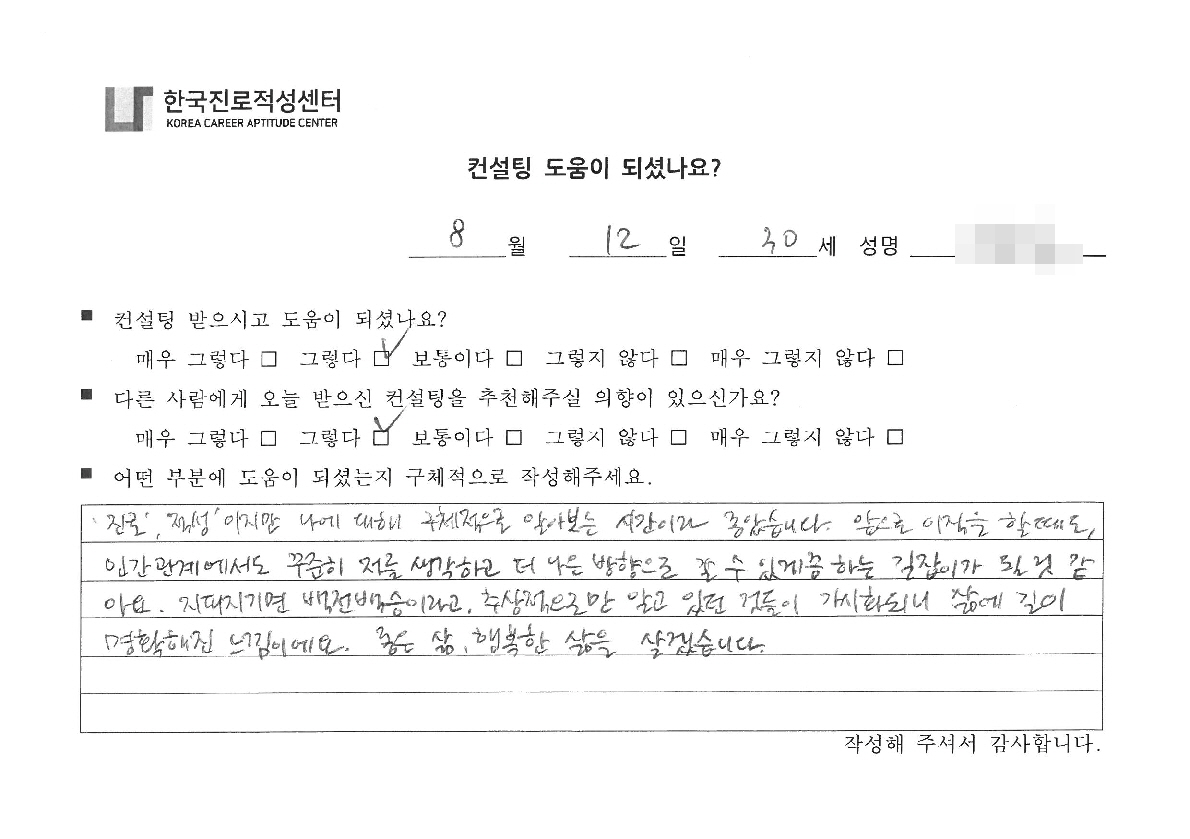 한국진로적성센터
KOREA CAREER APTITUDE CENTER
컨설팅 도움이 되셨나요?
8 월 12 일 30 세 성명
■ 컨설팅 받으시고 도움이 되셨나요?
매우 그렇다 □ 그렇다 ☑ 보통이다 □ 그렇지 않다 □ 매우 그렇지 않다 □
■ 다른 사람에게 오늘 받으신 컨설팅을 추천해주실 의향이 있으신가요?
매우 그렇다 □ 그렇다 ☑ 보통이다 □ 그렇지 않다 □ 매우 그렇지 않다 □
■ 어떤 부분에 도움이 되셨는지 구체적으로 작성해주세요.
'진로', '적성'이지만 나에 대해 구체적으로 알아보는 시간이라 좋았습니다. 앞으로 이직을 할때도,
인간관계에서도 꾸준히 저를 생각하고 더 나은 방향으로 갈 수 있게끔 하는 길잡이가 될 것 같
아요. 지피지기면 백전백승이라고, 추상적으로만 알고 있던 것들이 가시화되니 삶에 길이
명확해진 느낌이에요. 좋은 삶, 행복한 삶을 살겠습니다.
작성해 주셔서 감사합니다.